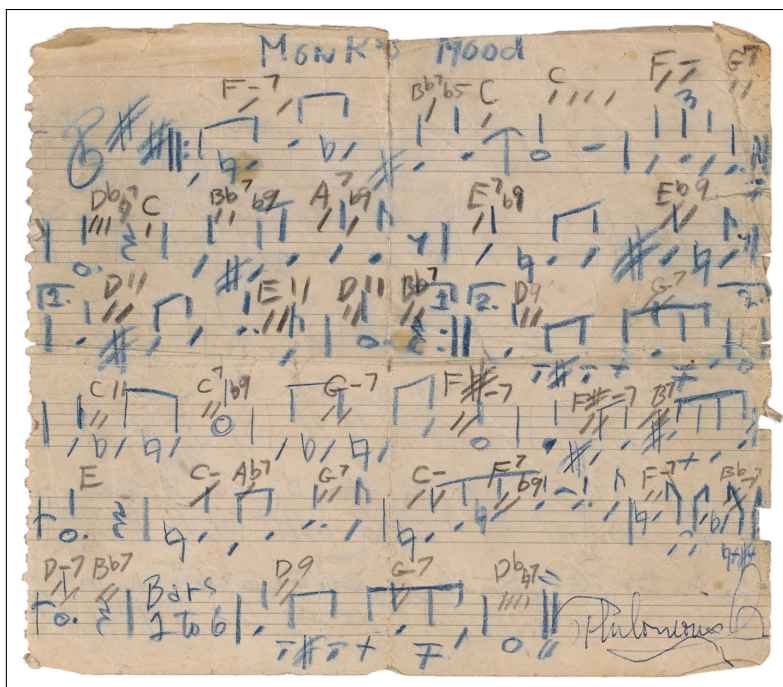 Monk's Mood
F-7 Bb7b5 C C F- 3 G7
Db♮7 C Bb7b9 A7b9 E7b9 Eb9
1. D11 E11 D11 Bb7 1. 2. D9 G7 2.
C11 C7b9 G-7 F#-7 F#-7 B7
E C- Ab7 G7 C- F7b9 F-7 Bb7
D-7 Bb7 Bars D9 G-7 Db♮7
1 to 6